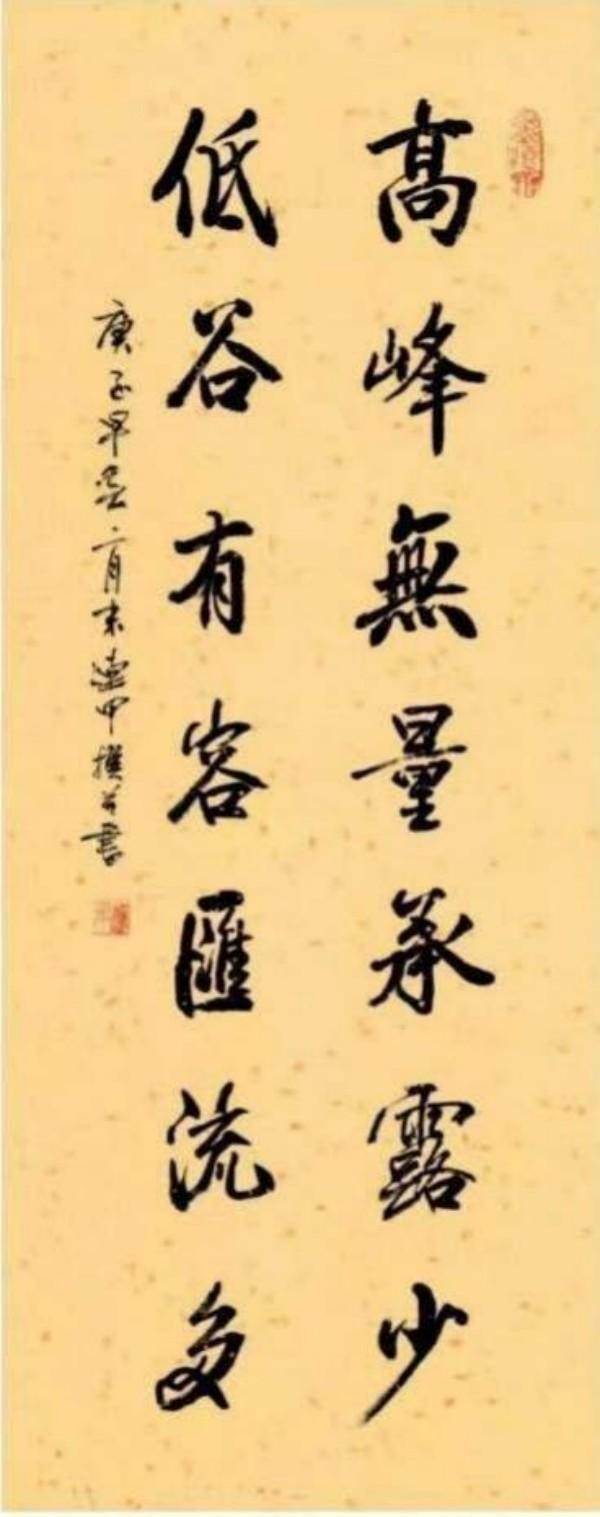 高峰無量承露少
低谷有容匯流多
庚子早春二月末 甲撰並書